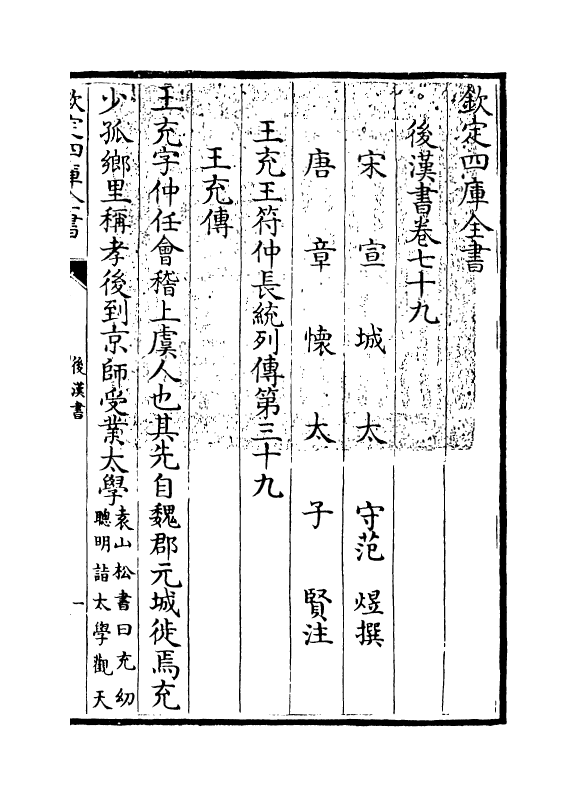 欽定四庫全書
後漢書卷七十九
宋宣城太守范煜撰
唐章懷太子賢注
王充王符仲長統列傳第三十九
王充傳
王充字仲任會稽上虞人也其先自魏郡元城徙焉充
少孤鄉里稱孝後到京師受業太學
袁山松書曰充幼
聰明詣太學觀天
欽定四庫全書
後漢書
一